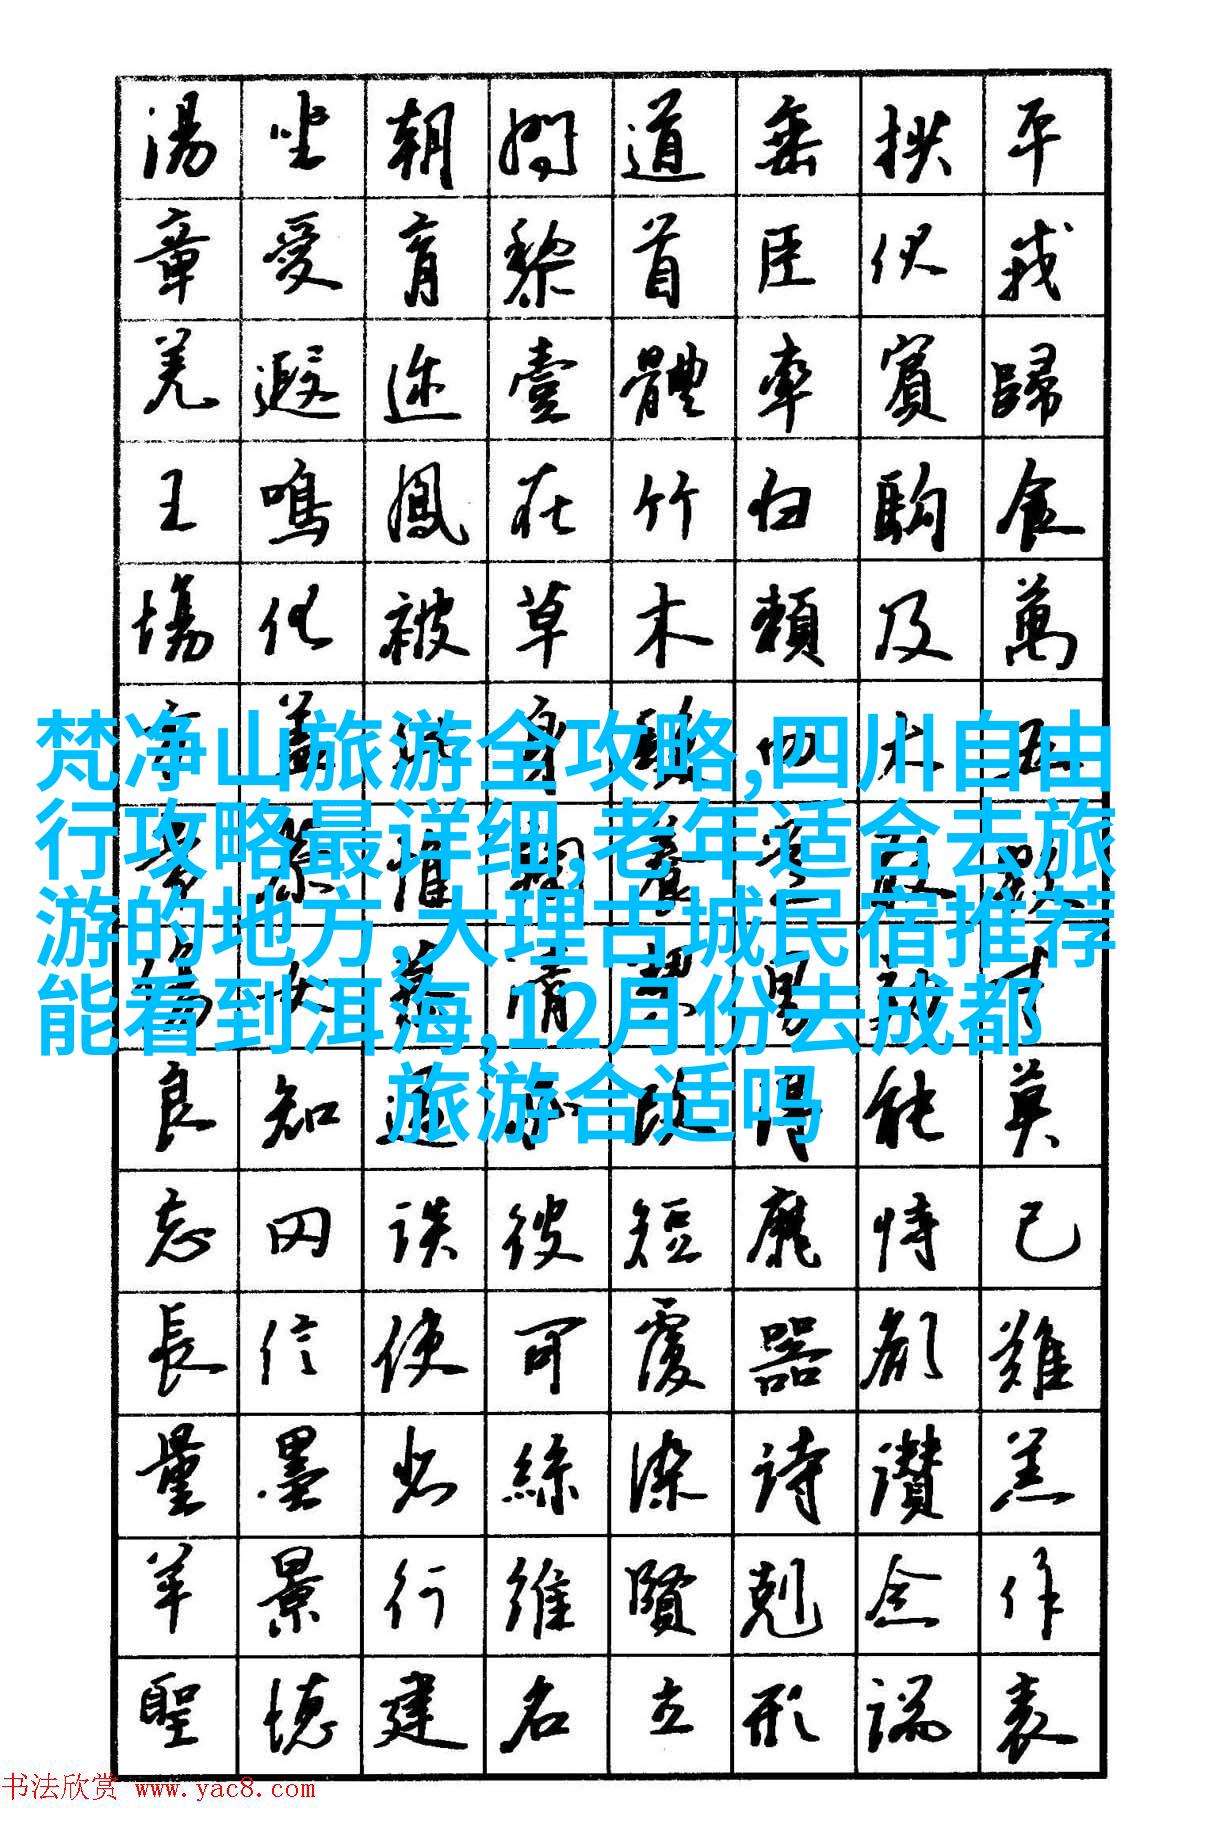 湯坐朝問道垂拱平
章愛育黎首臣伏戎
羌遐迩壹體率賓歸
王鳴鳳在竹白駒食
場化被草木賴及萬
梵净山旅游全攻略,四川自由
行攻略最详细,老年适合去旅
游的地方,大理古城民宿推荐
能看到洱海,12月份去成都
旅游合适吗
良知過必改得能莫
忘罔談彼短靡恃己
長信使可覆器欲難
量墨悲絲染詩讚羔
羊景行維賢剋念作
聖德建名立形端表
书法欣赏 www.yac8.com